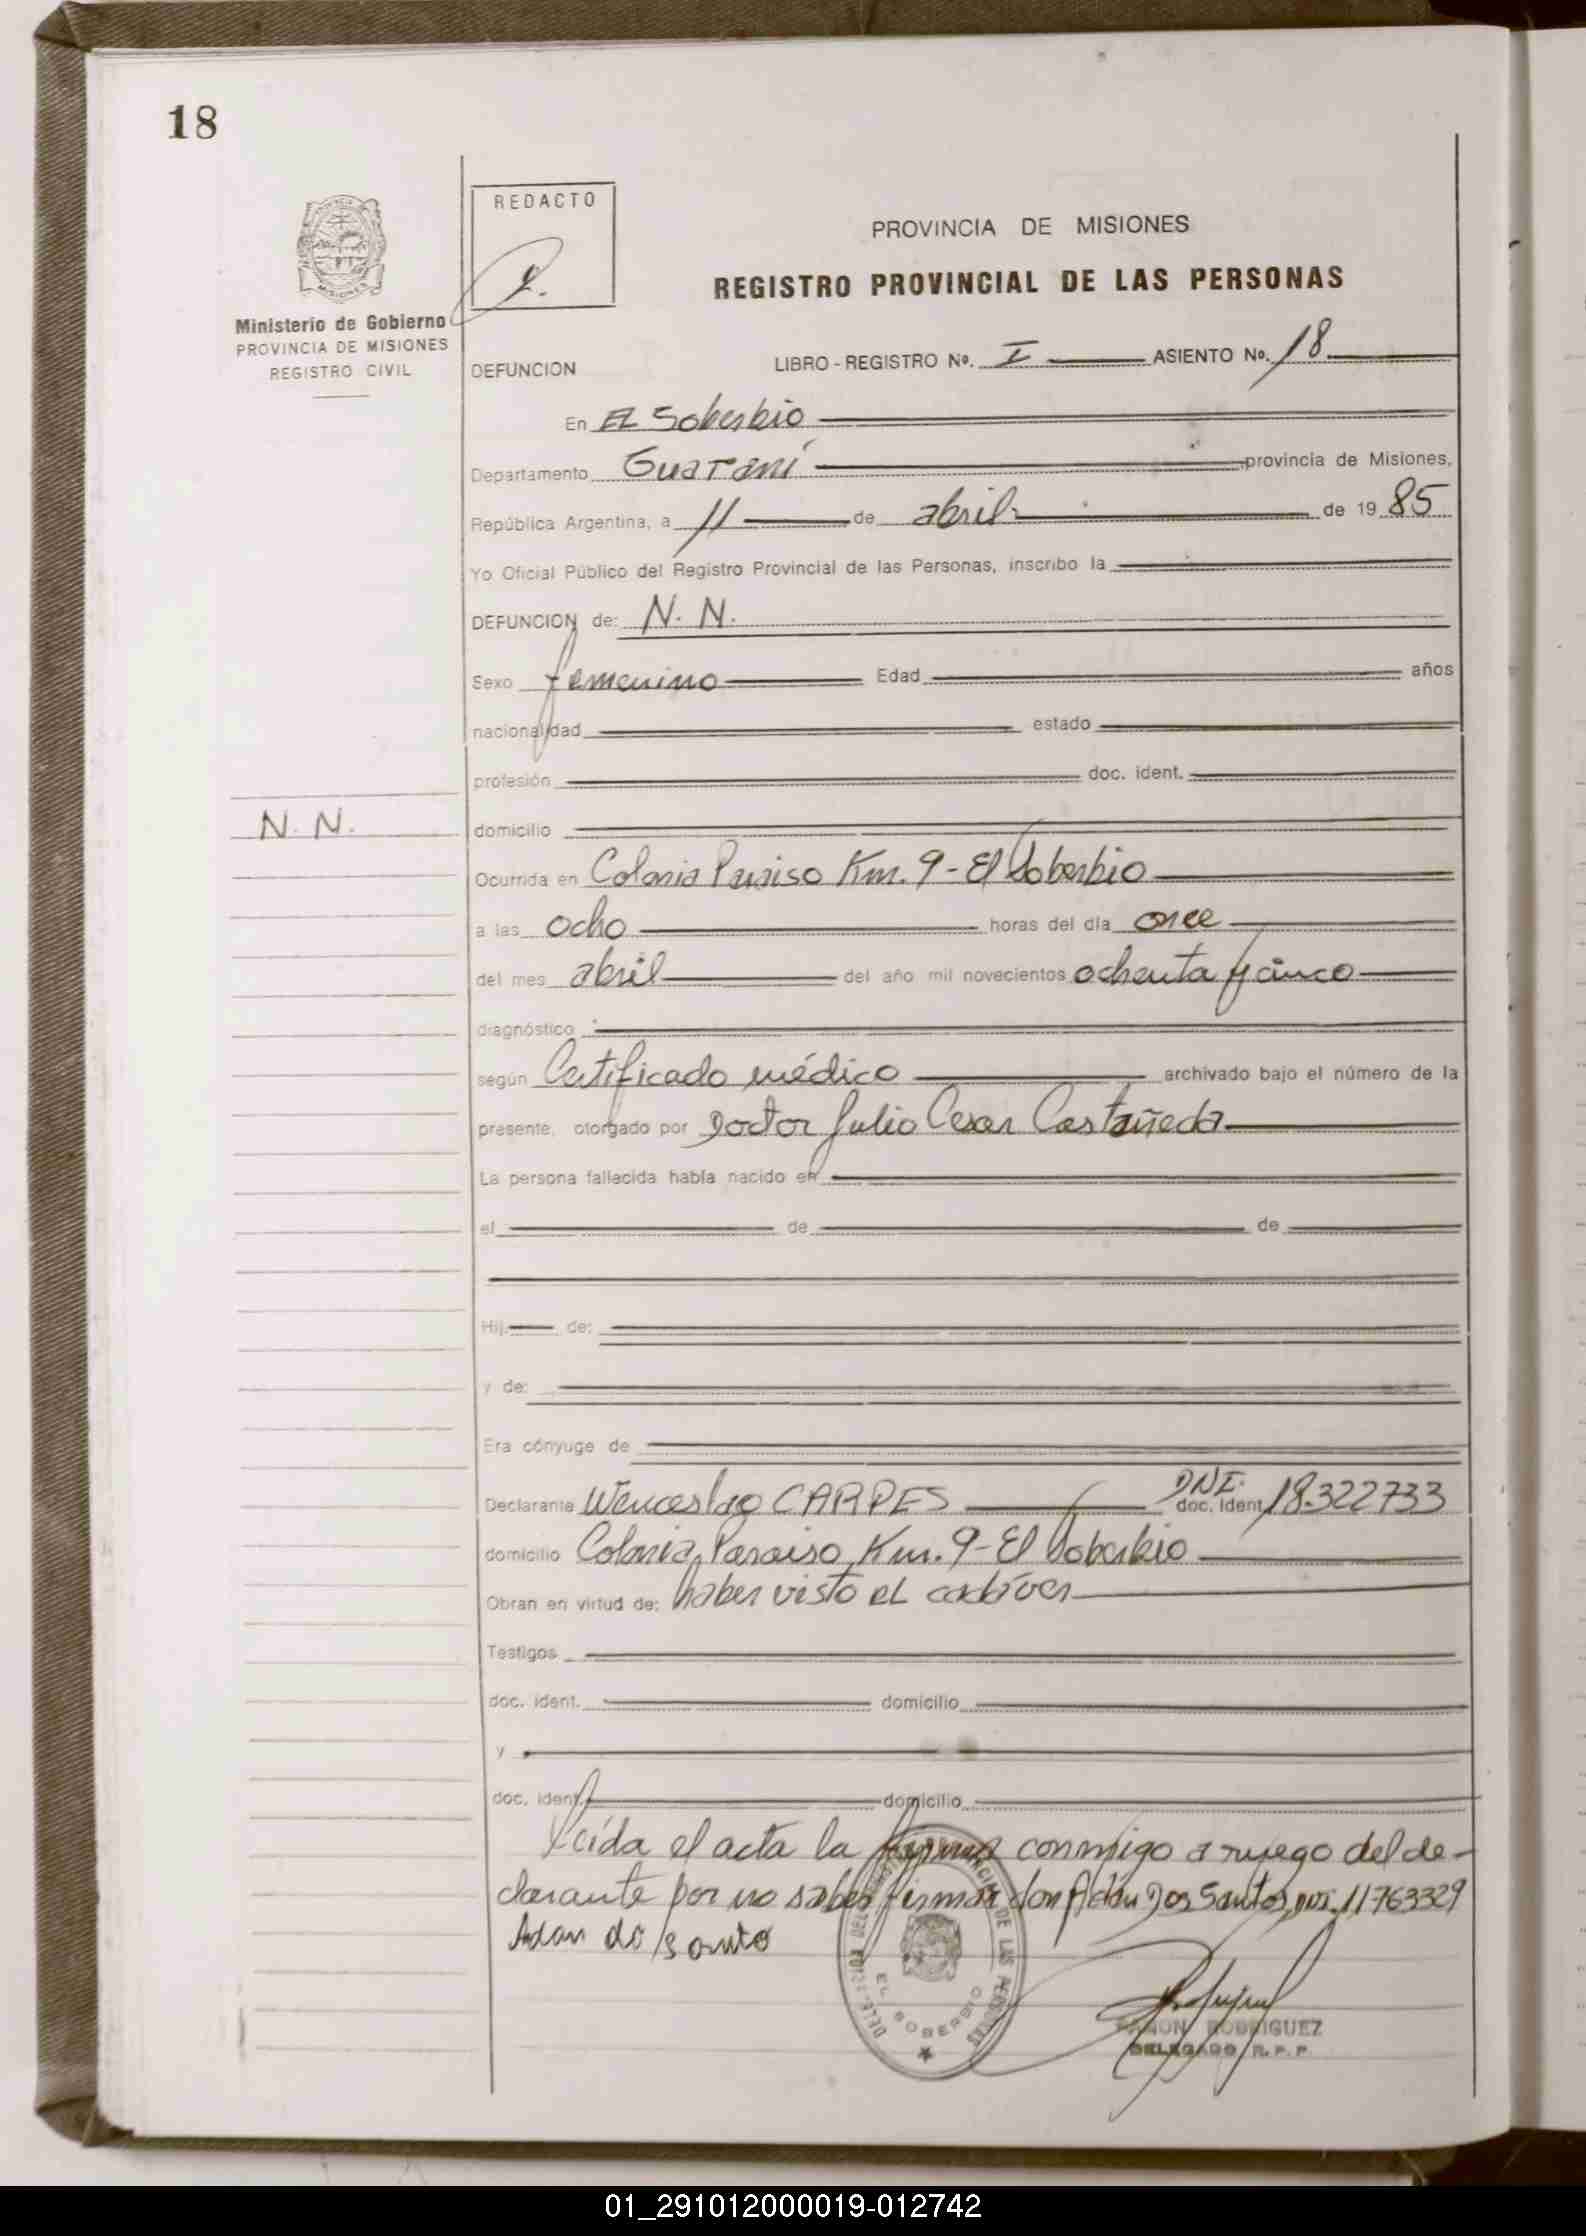 18
REDACTO
PROVINCIA DE MISIONES
REGISTRO PROVINCIAL DE LAS PERSONAS
Ministerio de Gobierno
PROVINCIA DE MISIONES
REGISTRO CIVIL
DEFUNCION LIBRO - REGISTRO Nº. I ASIENTO Nº. 18
En EL Soberbio
Departamento Guaraní provincia de Misiones,
República Argentina, a 11 de abril de 19 85
Yo Oficial Público del Registro Provincial de las Personas, inscribo la
DEFUNCION de: N. N.
Sexo femenino Edad años
nacionalidad estado
profesión doc. ident.
N. N.
domicilio
Ocurrida en Colonia Paraiso Km. 9 - El Soberbio
a las ocho horas del día once
del mes abril del año mil novecientos ochenta y cinco
diagnóstico
según Certificado médico archivado bajo el número de la
presente, otorgado por Doctor Julio Cesar Castañeda
La persona fallecida había nacido en
el de de
Hij de:
y de:
Era cónyuge de
Declarante Wenceslao CARPES doc. ident. DNI. 18.322733
domicilio Colonia Paraiso Km. 9 - El Soberbio
Obran en virtud de: haber visto el cadáver
Testigos
doc. ident. domicilio
y
doc. ident. domicilio
Leída el acta la firma conmigo a ruego del de-
clarante por no saber firmar don Adán Dos Santos, DNI. 11763329
Adan do santo
EL SOBERBIO
RAMON RODRIGUEZ
DELEGADO R. P. P.
01_291012000019-012742